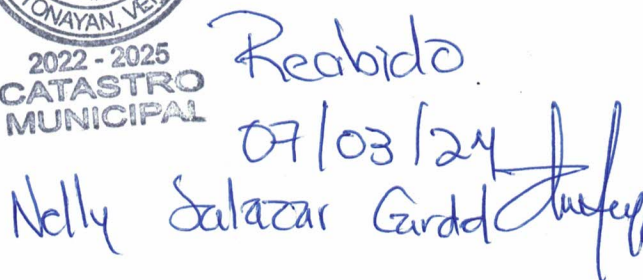 TONAYAN, VER
2022 - 2025
CATASTRO
MUNICIPAL
Recibido
07/03/24
Nelly Salazar